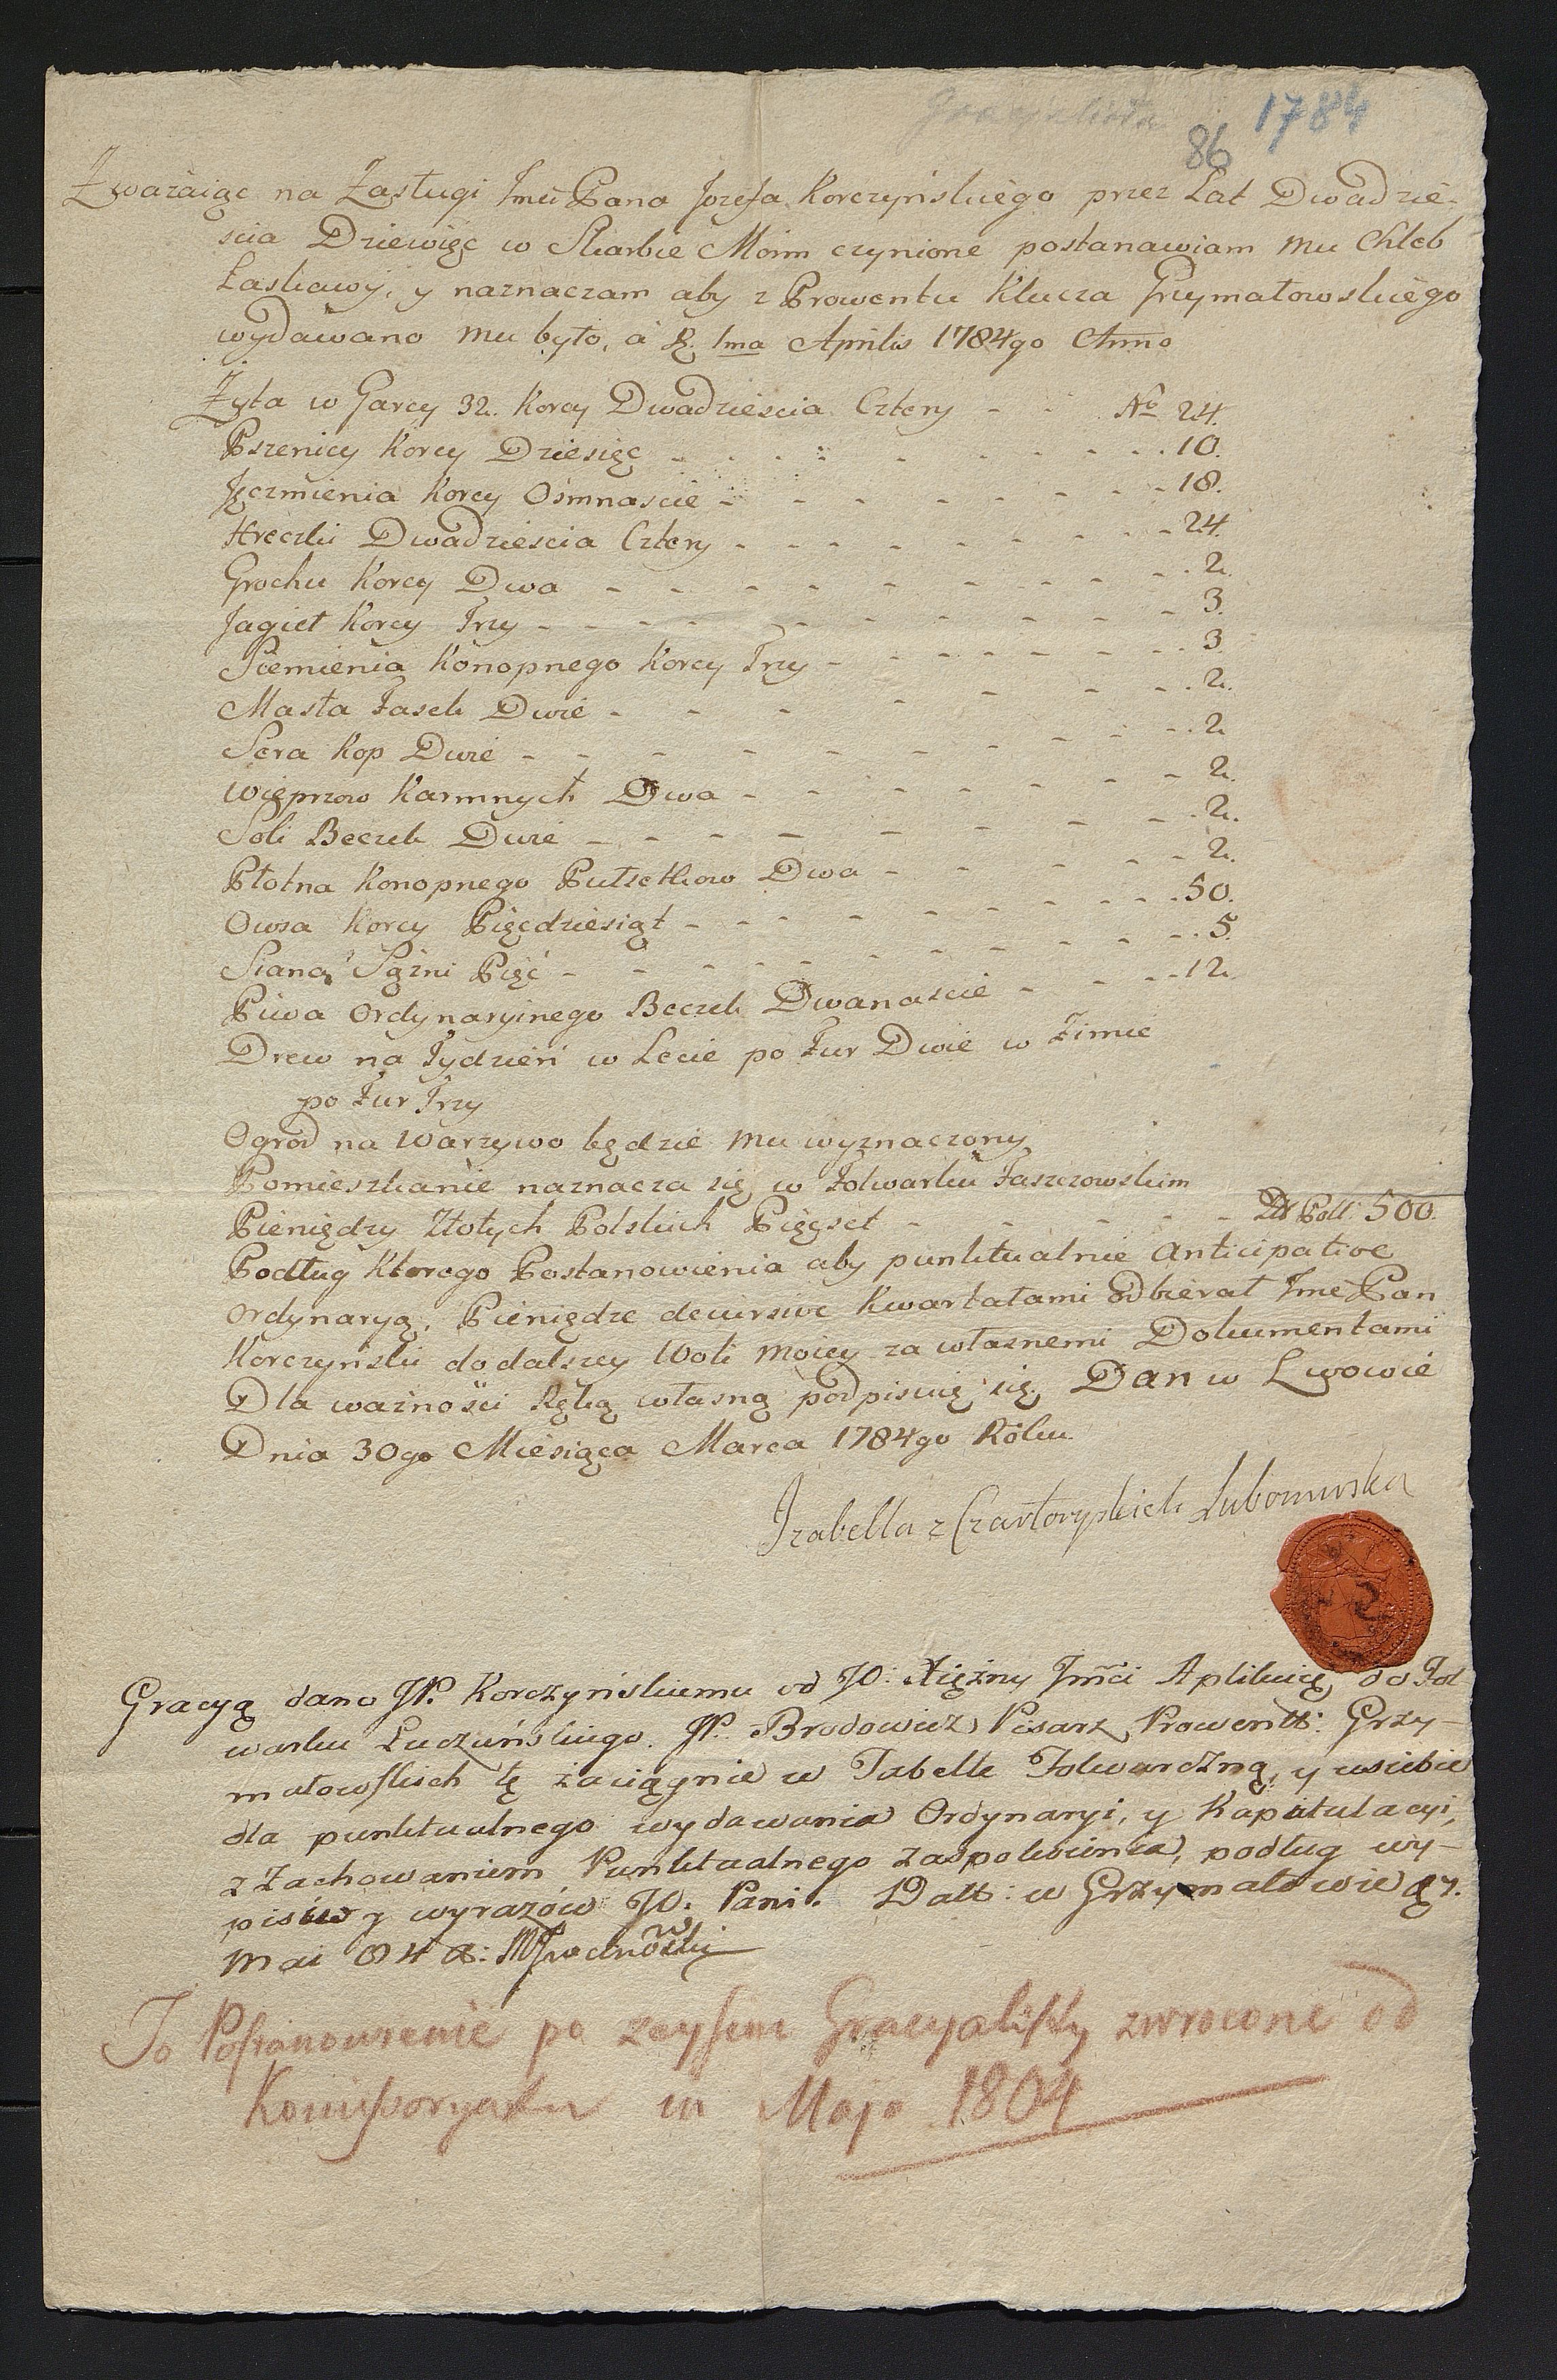 1784
86
Zwaźaiąc na Zasługi Jmci Pana Jozefa Korczyńskiego przez Lat Dwadzie-
scia Dziewięc w Skarbie Moim czynione postanawiam mu Chleb
Łaskawy, y naznaczam aby z Prowentu Klucza Grzymałowskiego
wydawano mu było, a d. 1ma Aprilis 1784go Anno
Zyta w Garcy 32. Korcy Dwadziescia Cztery - - No 24.
Pszenicy Korcy Dziesięc - - - 10.
Jęczmienia Korcy Osmnascie - - - 18.
Hreczki Dwadziescia Cztery - - - 24.
Grochu Korcy Dwa - - - 2.
Jagieł Korcy Trzy - - - 3.
Siemienia Konopnego Korcy Trzy - - - 3.
Masła Fasek Dwie - - - 2.
Sera Kop Dwie - - - 2
Wieprzow Karmnych Dwa - - - 2.
Soli Beczek Dwie - - - 2.
Płotna Konopnego Pułsetkow Dwa - - - 2.
Owsa Korcy Pięcdziesiąt - - - 50.
Siana Sązni Pięć - - - 5.
Piwa Ordynaryinego Beczek Dwanascie - - - 12
Drew na Tydzień w Lecie po Fur Dwie w Zimie
po Fur Trzy
Ogrod na Warzywo będzie mu wyznaczony
Pomieszkanie naznacza się w Folwarku Faszczowskim
Pieniędzy Złotych Polskich Pięcset - - - Zł Poll: 500.
Podług Ktorego Postanowienia aby punktualnie Anticipative
Ordynaryą, Pieniądze decursive Kwartałami odbierał Jme Pan
Korczyński do dalszey Woli moiey za własnemi Dokumentami
Dla ważności Ręką własną podpisuię się. Dan w Lwowie
Dnia 30go Miesiąca Marca 1784go Roku
Izabella z Czartoryskich Lubomirska
Gracyą dano JP. Korczyńskiemu od JO: Xiężny Jmci Aplikuię do Fol
warku Łuczyńskiego. JP. Brodowicz Pisarz Prowentt: Grzy-
małowskich tę zaciągnie w Tabelle Folwarczną, y w siebie
dla punktualnego wydawania Ordynaryi, y Kapitulacyi,
z zachowaniem Punktualnego zaspokoienia, podług wy-
pisów y wyrazów JO. Pani. Datt: w Grzymałowie d 7.
Mai 84 a:
To Postanowienie po zeyściu Gracyalisty zwrocone od
Komissoryatu in Majo 1804